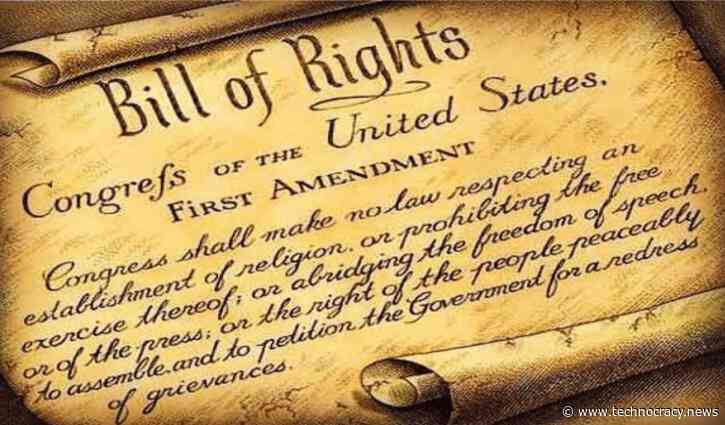 Bill of Rights
Congreſs OF THE United States.
FIRST AMENDMENT
Congress shall make no law respecting an
establishment of religion, or prohibiting the free
exercise thereof; or abridging the freedom of speech,
or of the press; or the right of the people peaceably
to assemble, and to petition the Government for a redress
of grievances.
© www.technocracy.news